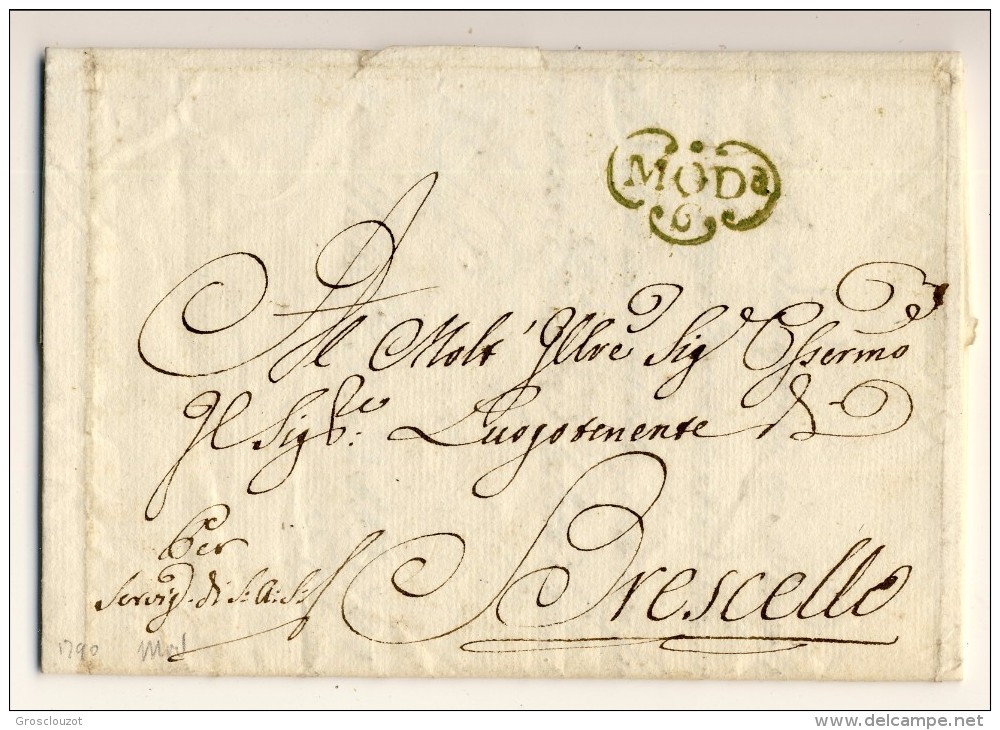 MODa
6
Al Molt' Illre Sig Ossermo
Il Sigr: Luogotenente di
Per
Servig. di S: A: S:
Brescello
1790 Mod
Grosclouzot
delcampe.net